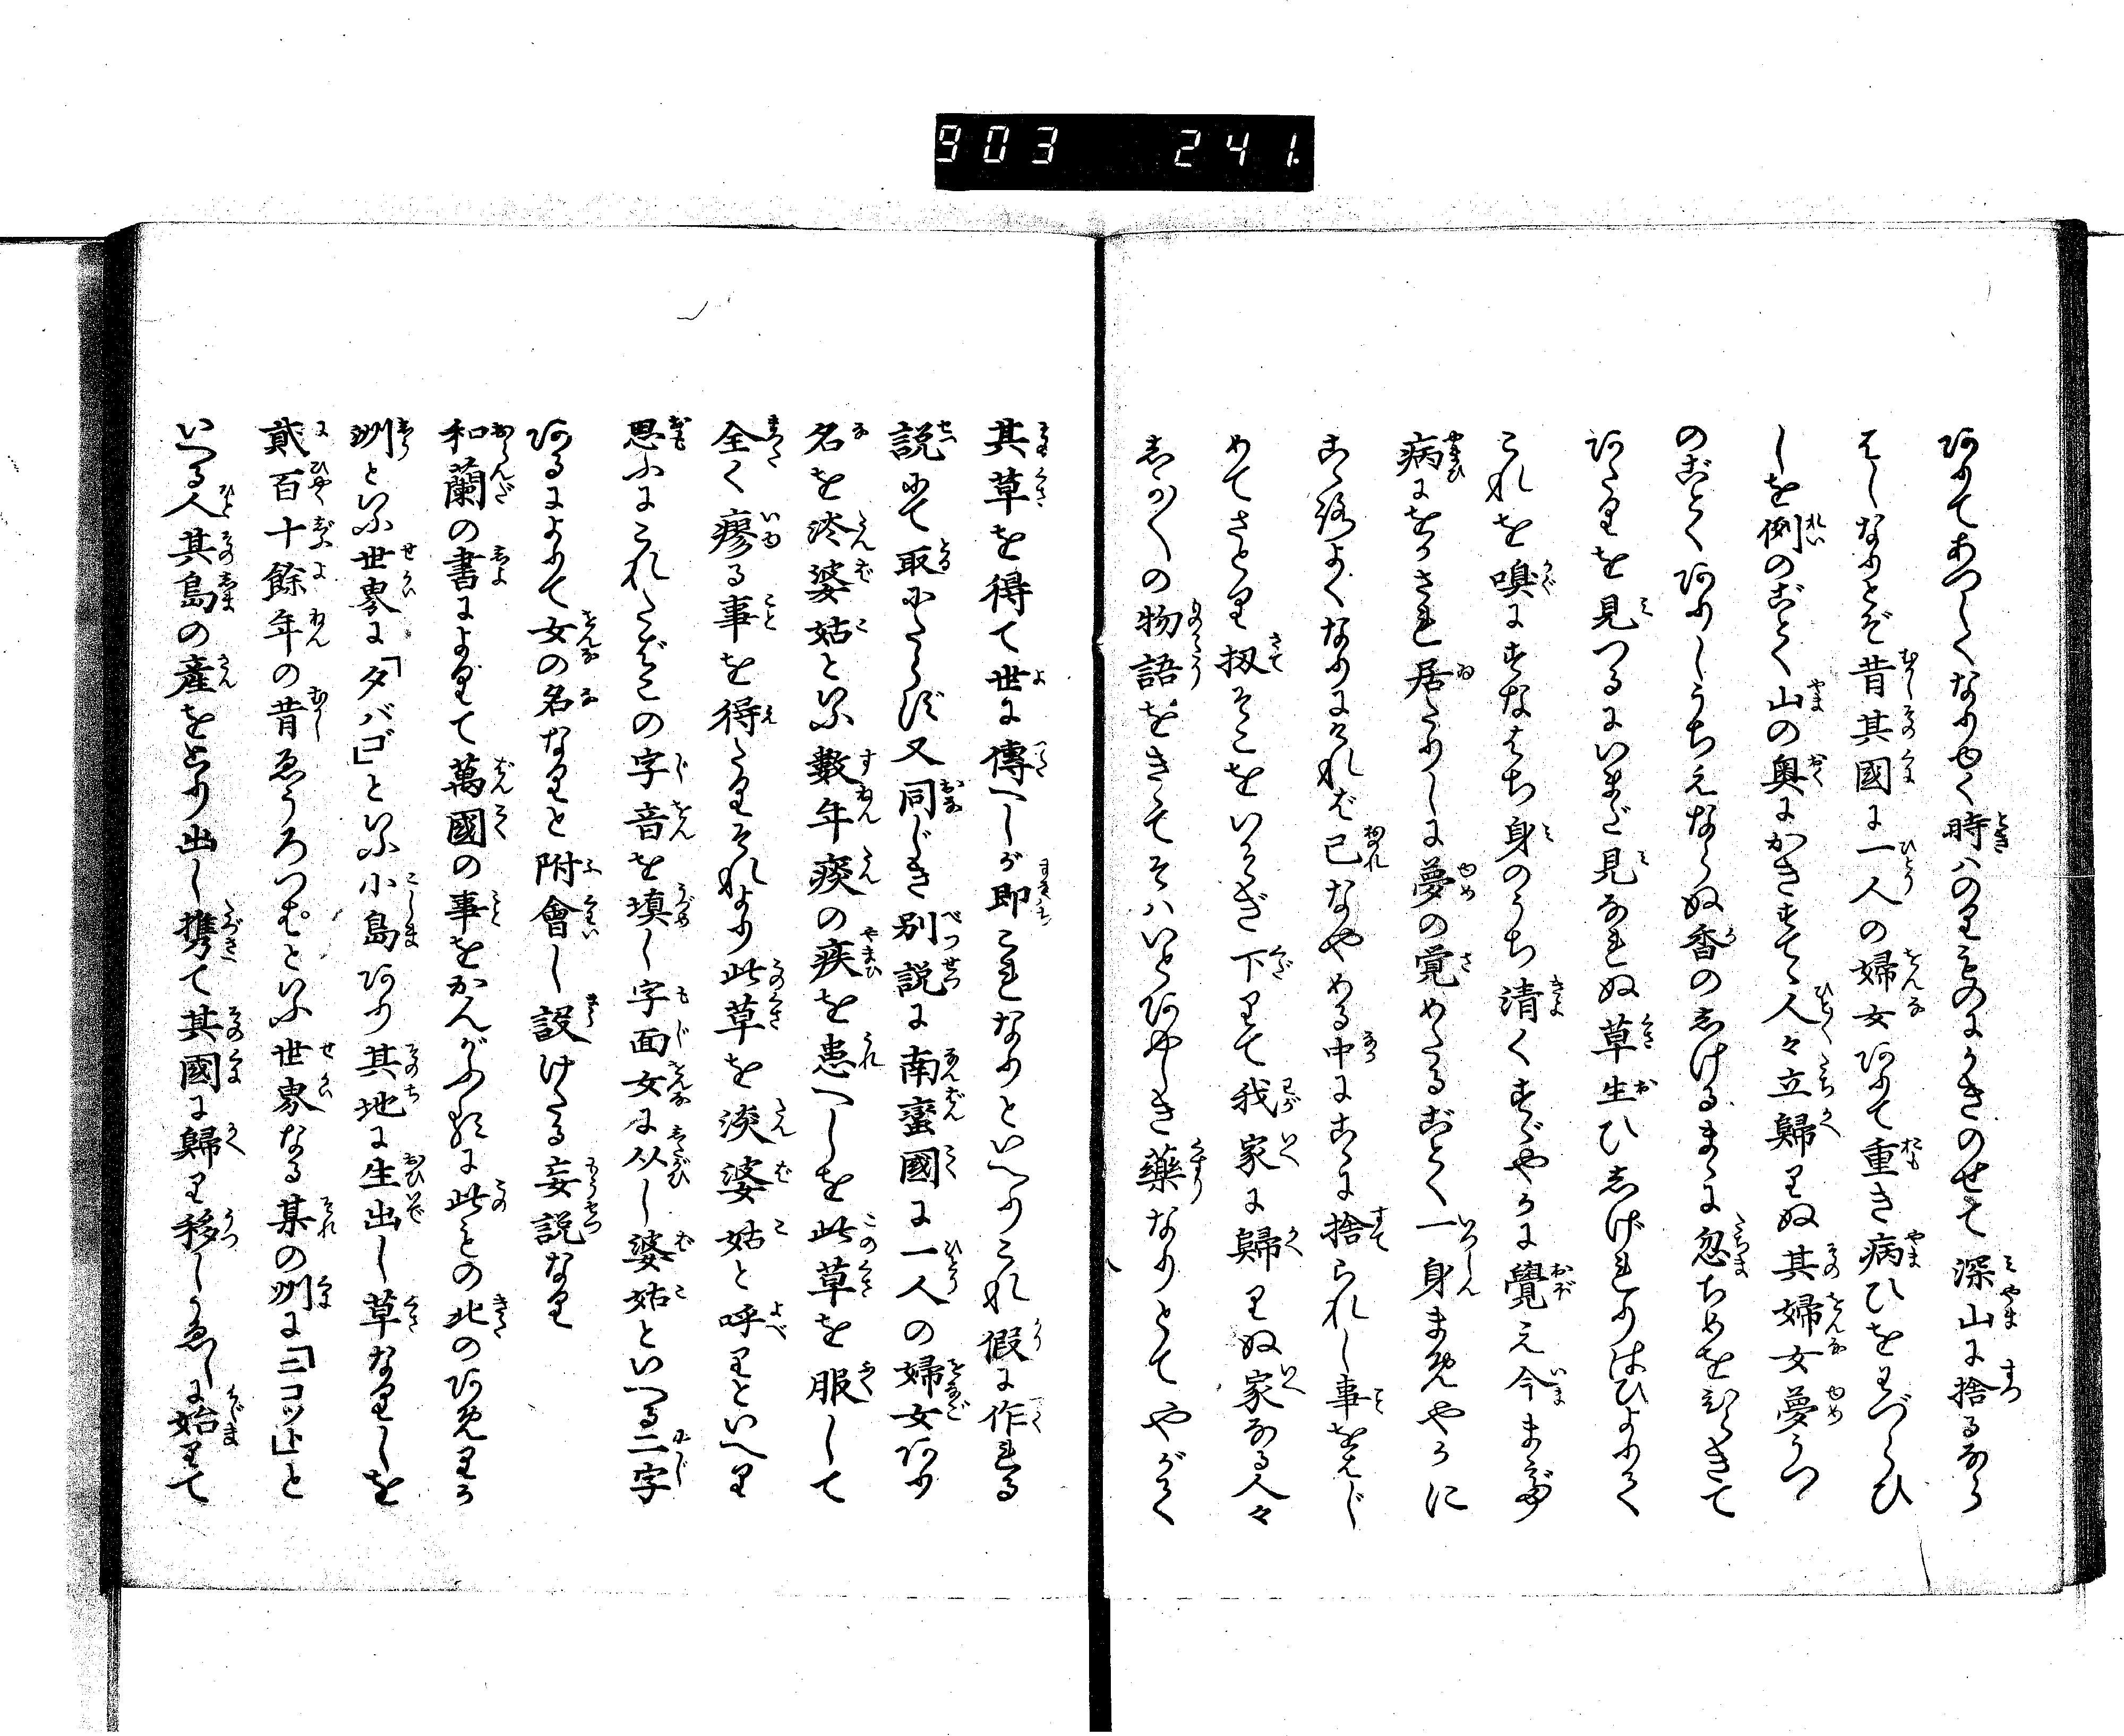 903 241
ありてあつしくなりゆく時はのりものにかきのせて深山に捨るなら
はしなりとぞ昔其國に一人の婦女ありて重き病ひをわづらひ
しを例のごとく山の奥にかきすて人々立歸りぬ其婦女夢うつゝ
のごとくありしうちえならぬ香のしけるまゝに忽ちめをひらきて
あたりを見つるにいまだ見なれぬ草生ひしげれりはひよりて
これを嗅にすなはち身のうち清くすゞやかに覺え今まで
病にをかされ居たりしに夢の覚めたるごとく一身まめやかに
こゝ路よくなりにければ己なやめる中にこゝに捨られし事をはじ
めてさとり扨そこをいそぎ下りて我家に歸りぬ家なる人々
しか〴〵の物語をきゝてそはいとあやしき藥なりとてやがて
其草を得て世に傳へしが即これなりといへりこれ假に作れる
説にて取にたらず又同じき別説に南蛮國に一人の婦女あり
名を淡婆姑といふ數年痰の疾を患へしを此草を服して
全く瘳る事を得たりそれより此草を淡婆姑と呼りといへり
思ふにこれたばこの字音を填し字面女に从し婆姑といへる二字
あるによりて女の名なりと附會し設けたる妄説なり
和蘭の書によりて萬國の事をかんがふるに此ものゝ北のあめりか
洲といふ世界に「タバゴ」といふ小島あり其地に生出し草なりしを
貳百十餘年の昔ゑうろつぱといふ世界なる某の洲に「ニコット」と
いへる人其島の産をとり出し携て其國に歸り移しうゑしに始りて